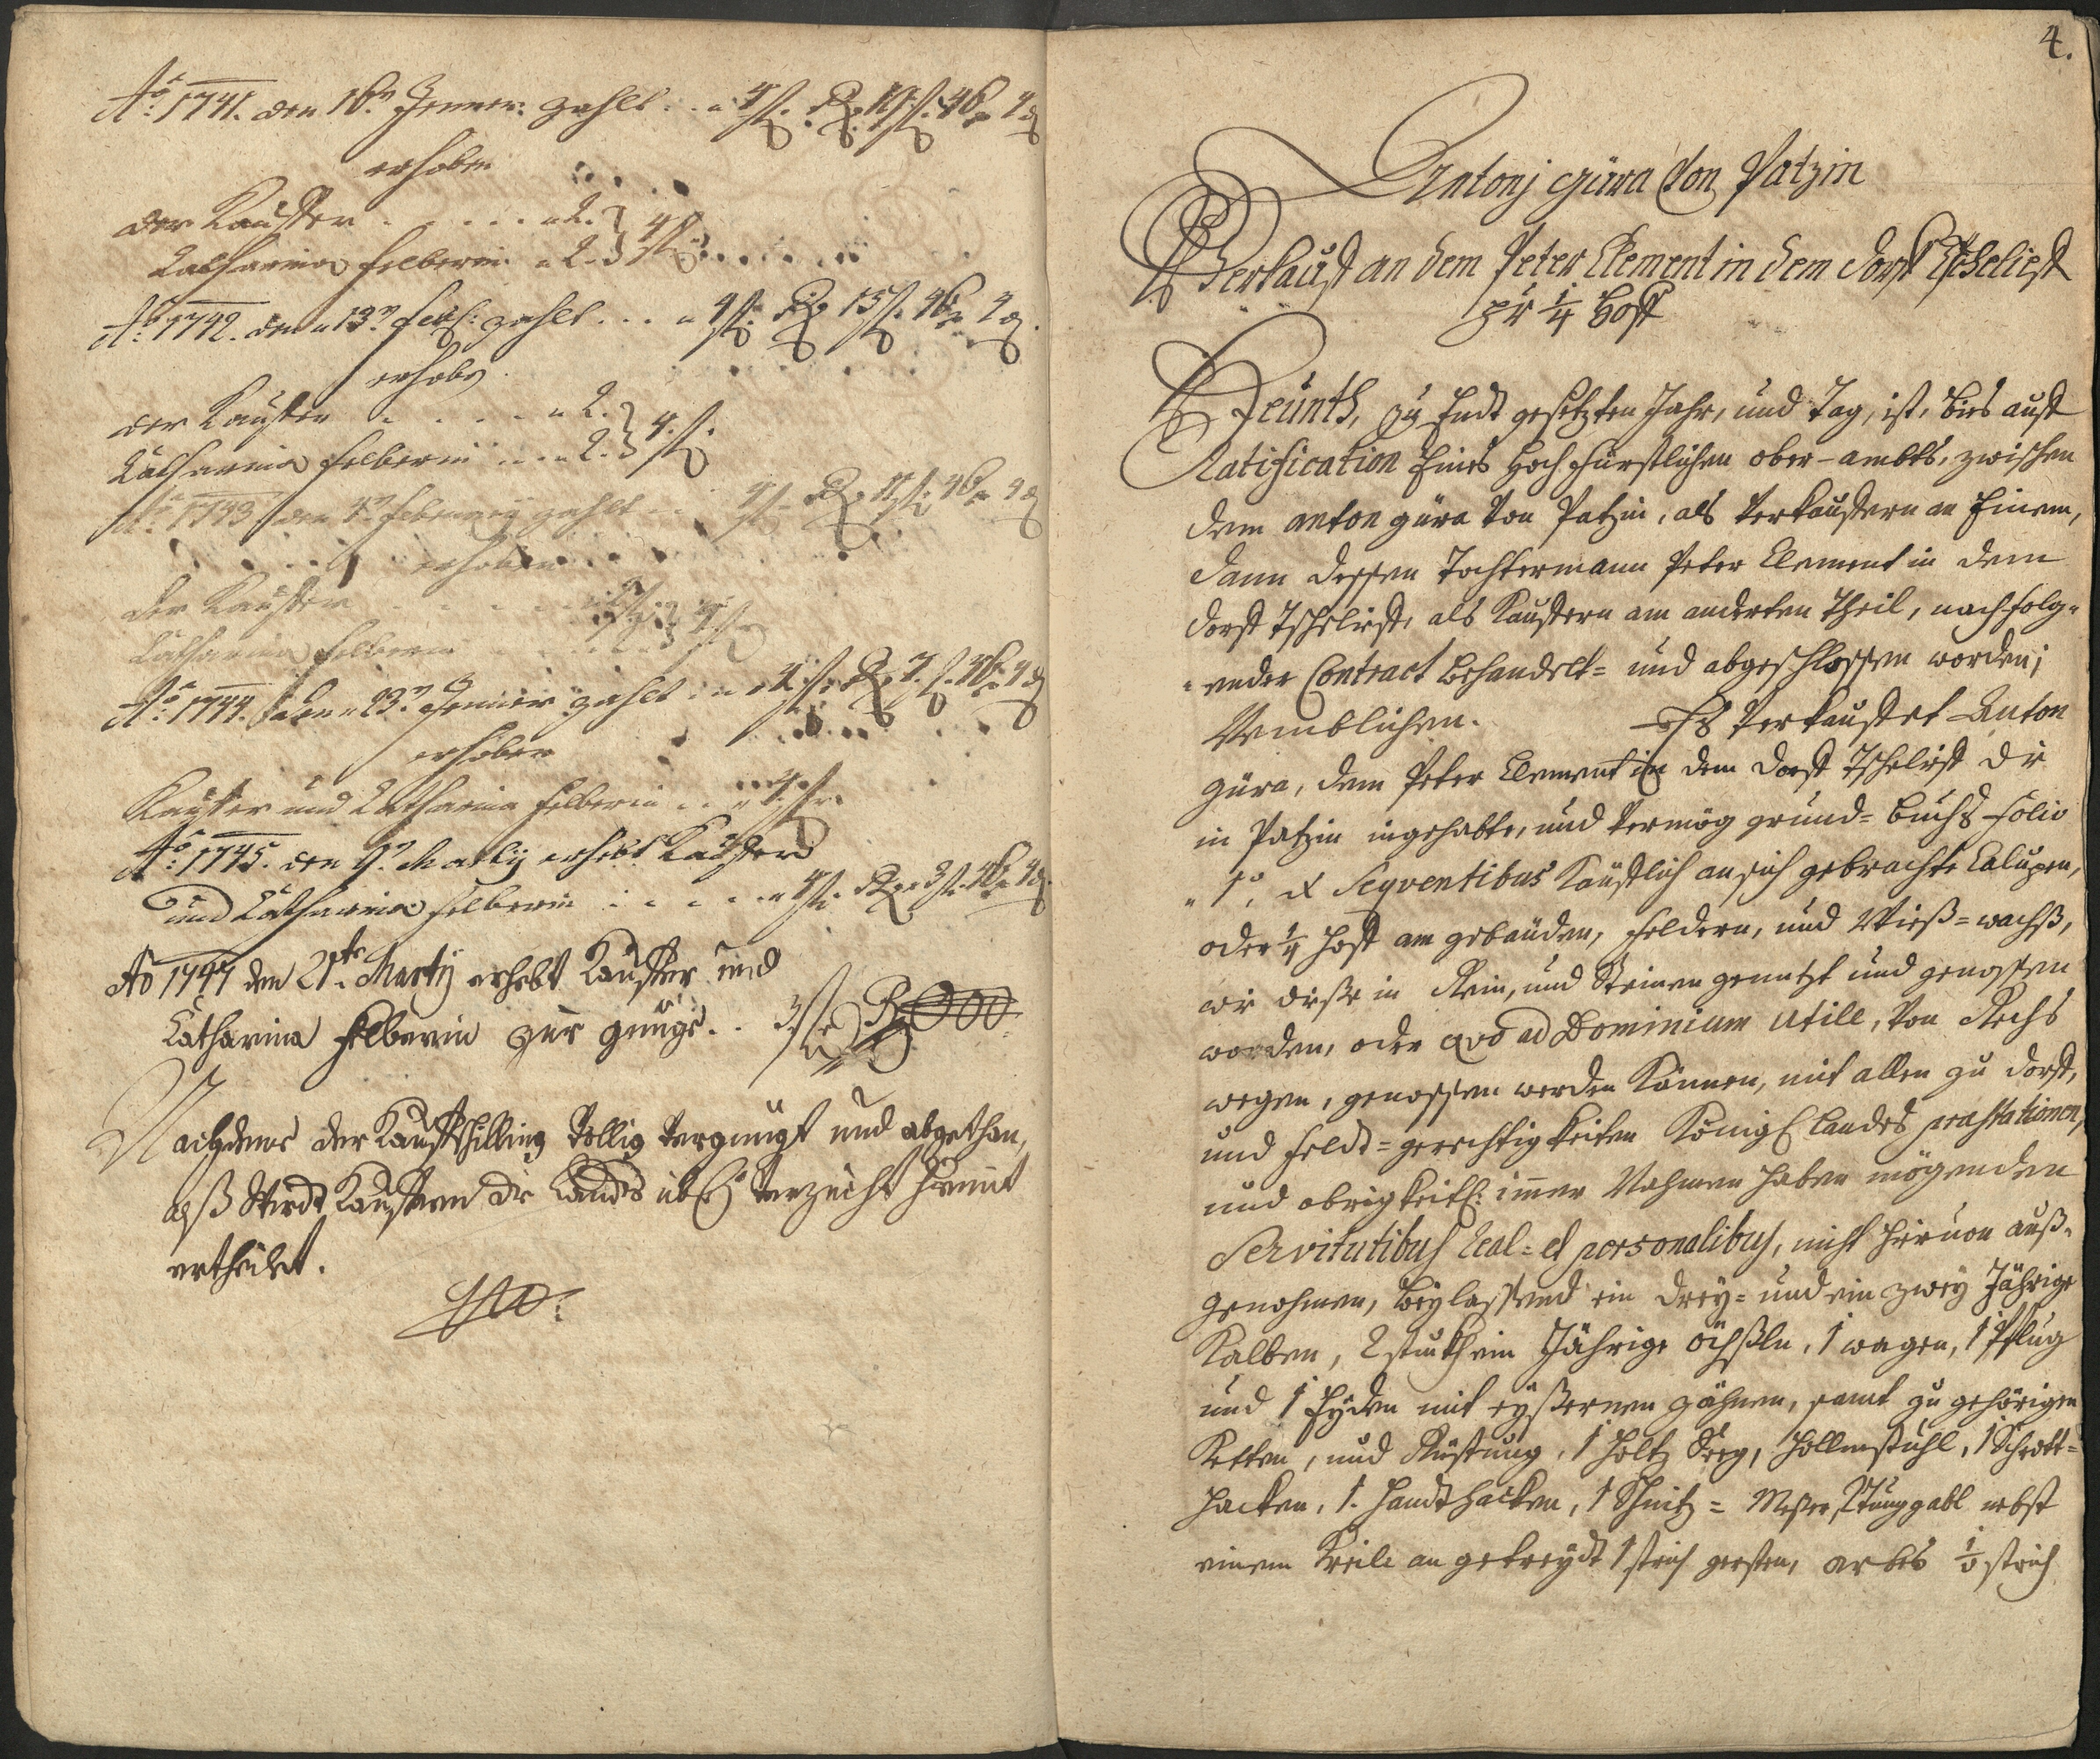 Aō: 1741. den 16t Jenner: zahlt . . 4 fl. R. 19 fl. 46 x 4 d
erhoben
der Kauffer . . . . . 2. } 4 fl
Catharina Felberin . 2.
Aō: 1742. den 13t feb: zahlt . . . 4 fl. R. 15 fl. 46 x 4 d.
erhobn
der Kauffer . . . . 2. } 4. fl.
Catharina Felberin . . . 2.
Aō: 1743 den februarij zahlt . . 4 fl. R. 11 fl. 46 x 4 d
erhoben
der Kauffer . . . . 2 } 4 fl
Catharina Felberin . . . 2
Aō: 1744. den 23t Jenner zahlt . . 4 fl. R. 7. fl. 46 x 4 d
erhoben
Kauffer und Catharina Felberin . . 4 fl.
Aō: 1745. den 9t Martij erhebt Kauffer
und Catharina Felberin . . . . 4 fl. R. 3 fl. 46 x 4 d.
Aō 1747 den 21te Martij erhebt Kauffer und
Catharina Felberin zur genüge . . 3 fl R 000
Nachdeme der Kauffschilling völlig vergnügt und abgethan,
alß wirdt Kauffern die Landts übl: verzücht hiemit
ertheilet.
4.
Antonj Güra Von Patzin
Verkauft an dem Peter Clement in dem dorff Tscheliest
pr 1/4 Hoff
Heünth, zu Endt gesetzten Jahr, und Tag, ist, bies auff
Ratification Eines Hoch fürstlichen ober-ambts, zwischen
dem anton güra von Patzin, als verkauffern an Einem,
dann dessen Tochtermann Peter Clement in dem
dorff Tscheliest, als Kauffern am anderten Theil, nachfolg-
ender Contract behandelt- und abgeschlossen worden;
Nemblichen. Es verkauffet Anton
güra, dem Peter Clement in dem dorff Tscheliest die
in Patzin ingehabte, und vermög grund-buchs folio
1o, et Seqventibus Käufflich an sich gebrachte Calupen,
oder 1/4 Hoff an gebäuden, feldern, und Wieß-wachß,
wie dieße in Rein, und Steinen genutzt und genossen
worden, oder qvo ad Dominium utille, von Rechts
wegen, genossen werden Können, mit allen zu dorff,
und feldt-gerechtigkeiten König: landes prastationen,
und obrigkeitl: immer Nahmen haben mögenden
Servitutibus Real- et personalibus, nicht hievon auß-
genohmen, beylassend ein drey- und ein zwey Jährige
Kalben, 2 stuckh ein Jährige öchßln, 1 wagen, 1 Pflug
und 1 Eyden mit eyßernen zähnen, samt zu gehörigen
Ketten, und Rüstung, 1 Holtz Seeg, Hollenstuhl, 1 Schrott-
hacken, 1. Handthacken, 1 Schnitz- Messer, Tunggabl nebst
einem Keile an getreydt 1 strich gersten, arbes 1/8 strich